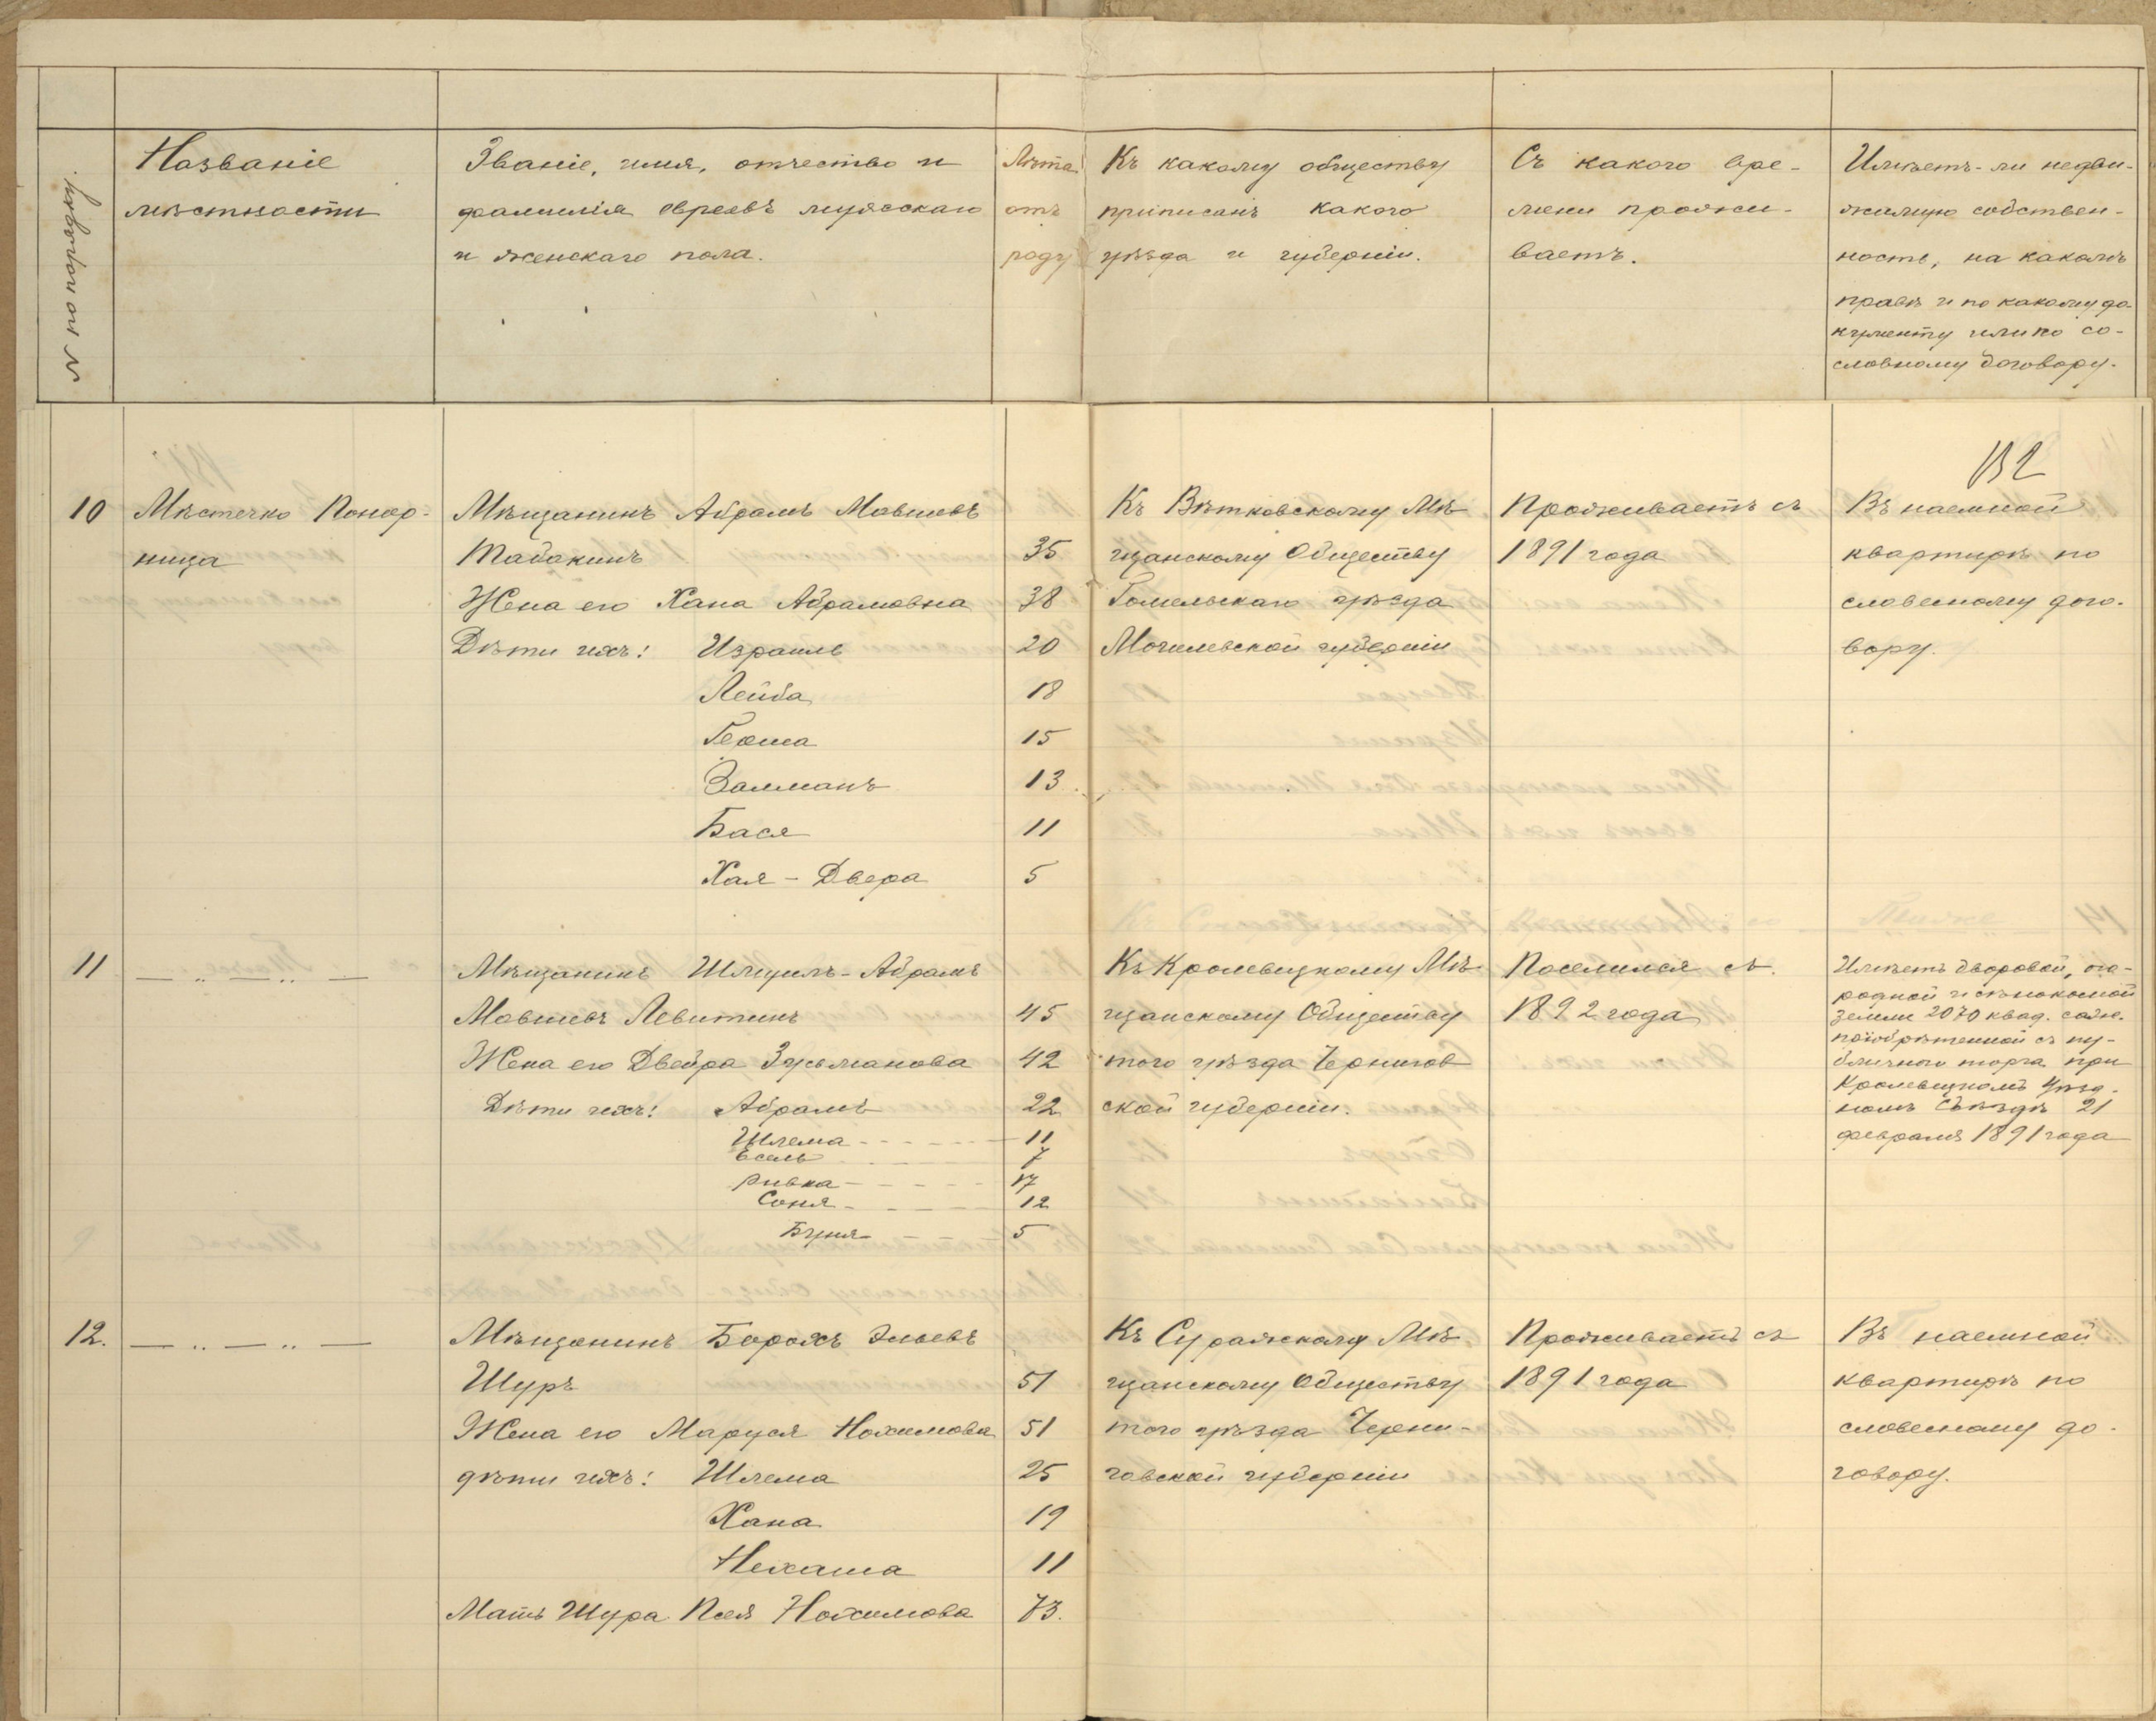 № по порядку.
Названіе
мѣстности
Званіе, имя, отчество и
фамилія евреевъ мужскаго
и женскаго пола.
Лѣта
отъ
роду
Къ какому обществу
приписанъ какого
уѣзда и губерніи.
Съ какого вре-
мени прожи-
ваетъ.
Имѣетъ-ли недви-
жимую собствен-
ность, на какомъ
правѣ и по какому до-
кументу или по со-
словному договору.
132
10
Мѣстечко Понор-
ница
Мѣщанинъ Абрамъ Мовшевъ
Табакинъ 35
Жена его Хана Абрамовна 38
Дѣти ихъ: Израиль 20
Лейба 18
Герша 15
Залманъ 13
Бася 11
Хая - Двера 5
Къ Вѣтковскому Мѣ-
щанскому Обществу
Гомельскаго уѣзда
Могилевской губерніи
Проживаетъ съ
1891 года
Въ наемной
квартирѣ по
словесному дого-
вору.
11
— „ — „ —
Мѣщанинъ Шмуилъ-Абрамъ
Мовшевъ Левитинъ 45
Жена его Двейра Зусьманова 42
Дѣти ихъ: Абрамъ 22
Шлема 11
Есель 7
Ривка 17
Соня 12
Буня 5
Къ Кролевецкому Мѣ-
щанскому Обществу
того уѣзда Чернигов
ской губерніи.
Поселился съ
1892 года
Имѣетъ дворовой, ого-
родной и сѣнокосной
земли 2070 квад. саж.
пріобрѣтенной съ пу-
бличного торга при
Кролевецкомъ Уѣзд-
номъ Съѣздѣ 21
февраля 1891 года
12.
— „ — „ —
Мѣщанинъ Борохъ Эльевъ
Шуръ 51
Жена его Маруся Нохимова 51
дѣти ихъ: Шлема 25
Хана 19
Нехама 11
Мать Шура Песя Нохимова 73.
Къ Суражскому Мѣ-
щанскому Обществу
того уѣзда Черни-
говской губерніи
Проживаетъ съ
1891 года
Въ наемной
квартирѣ по
словесному до-
говору.